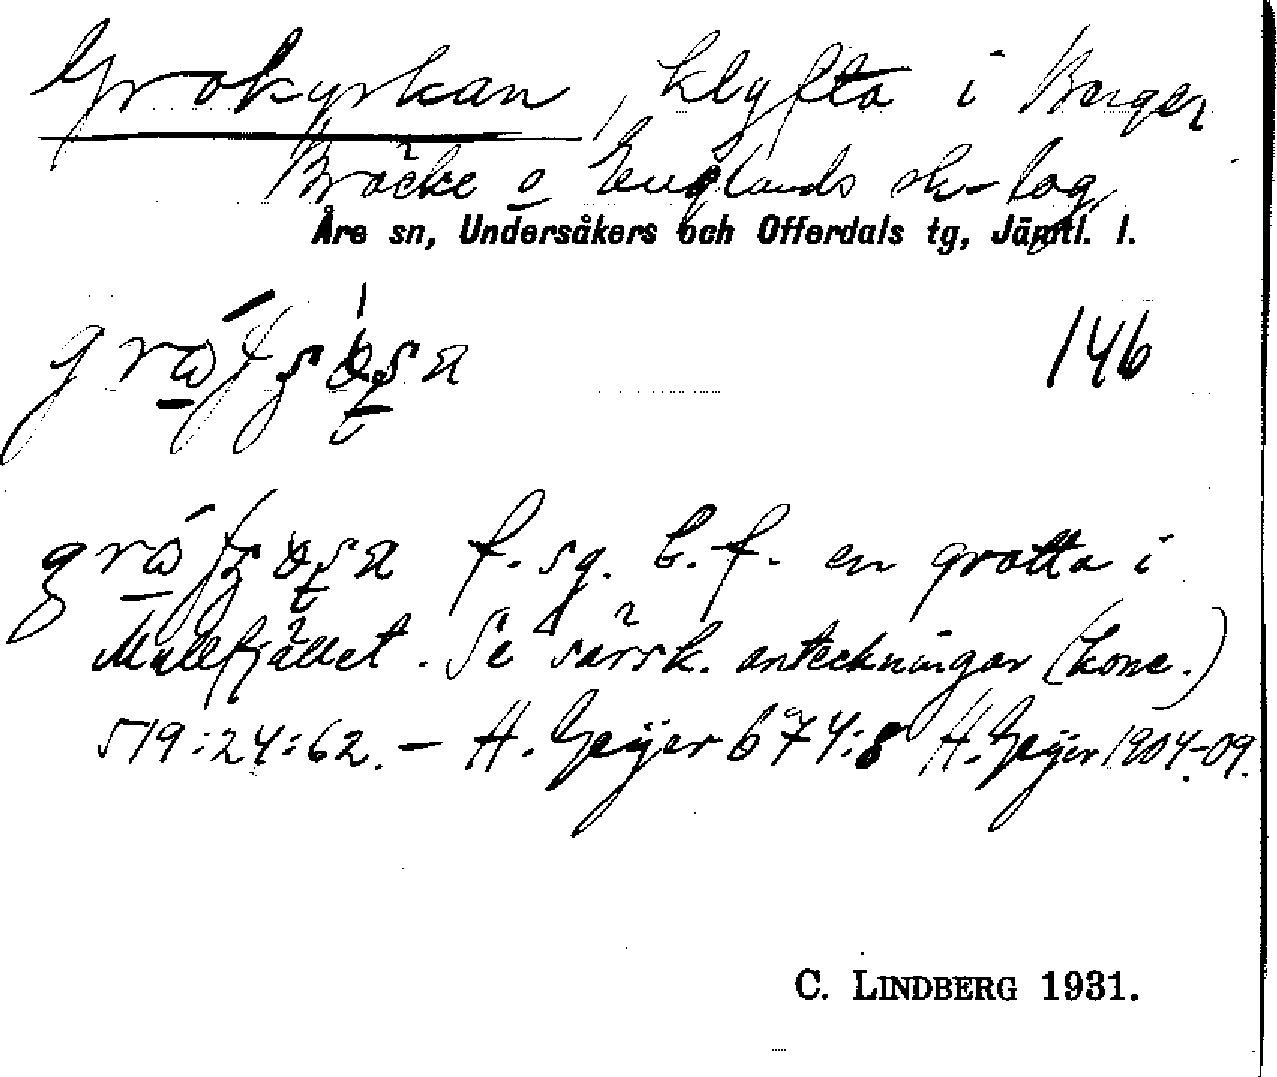 Grokyrkan, klyfta i Berger
Bräcke o Englands sk-lag
Åre sn, Undersåkers och Offerdals tg, Jämtl. l.
146
f. sg. b. f. en grotta i
Mullfjället. Se särsk. anteckningar (konc.)
519:24:62. – H. Geijer 674:8 H. Geijer 1904-09.
C. LINDBERG 1931.